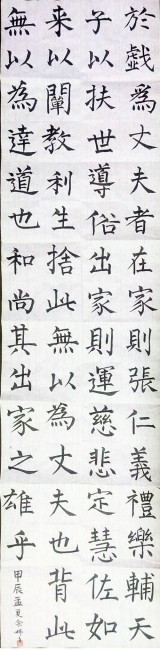 於戲為丈夫者在家則張仁義禮樂輔天
子以扶世導俗出家則運慈悲定慧佐如
来以闡教利生捨此無以為丈夫也背此
無以為達道也和尚其出家之雄乎
甲辰孟夏